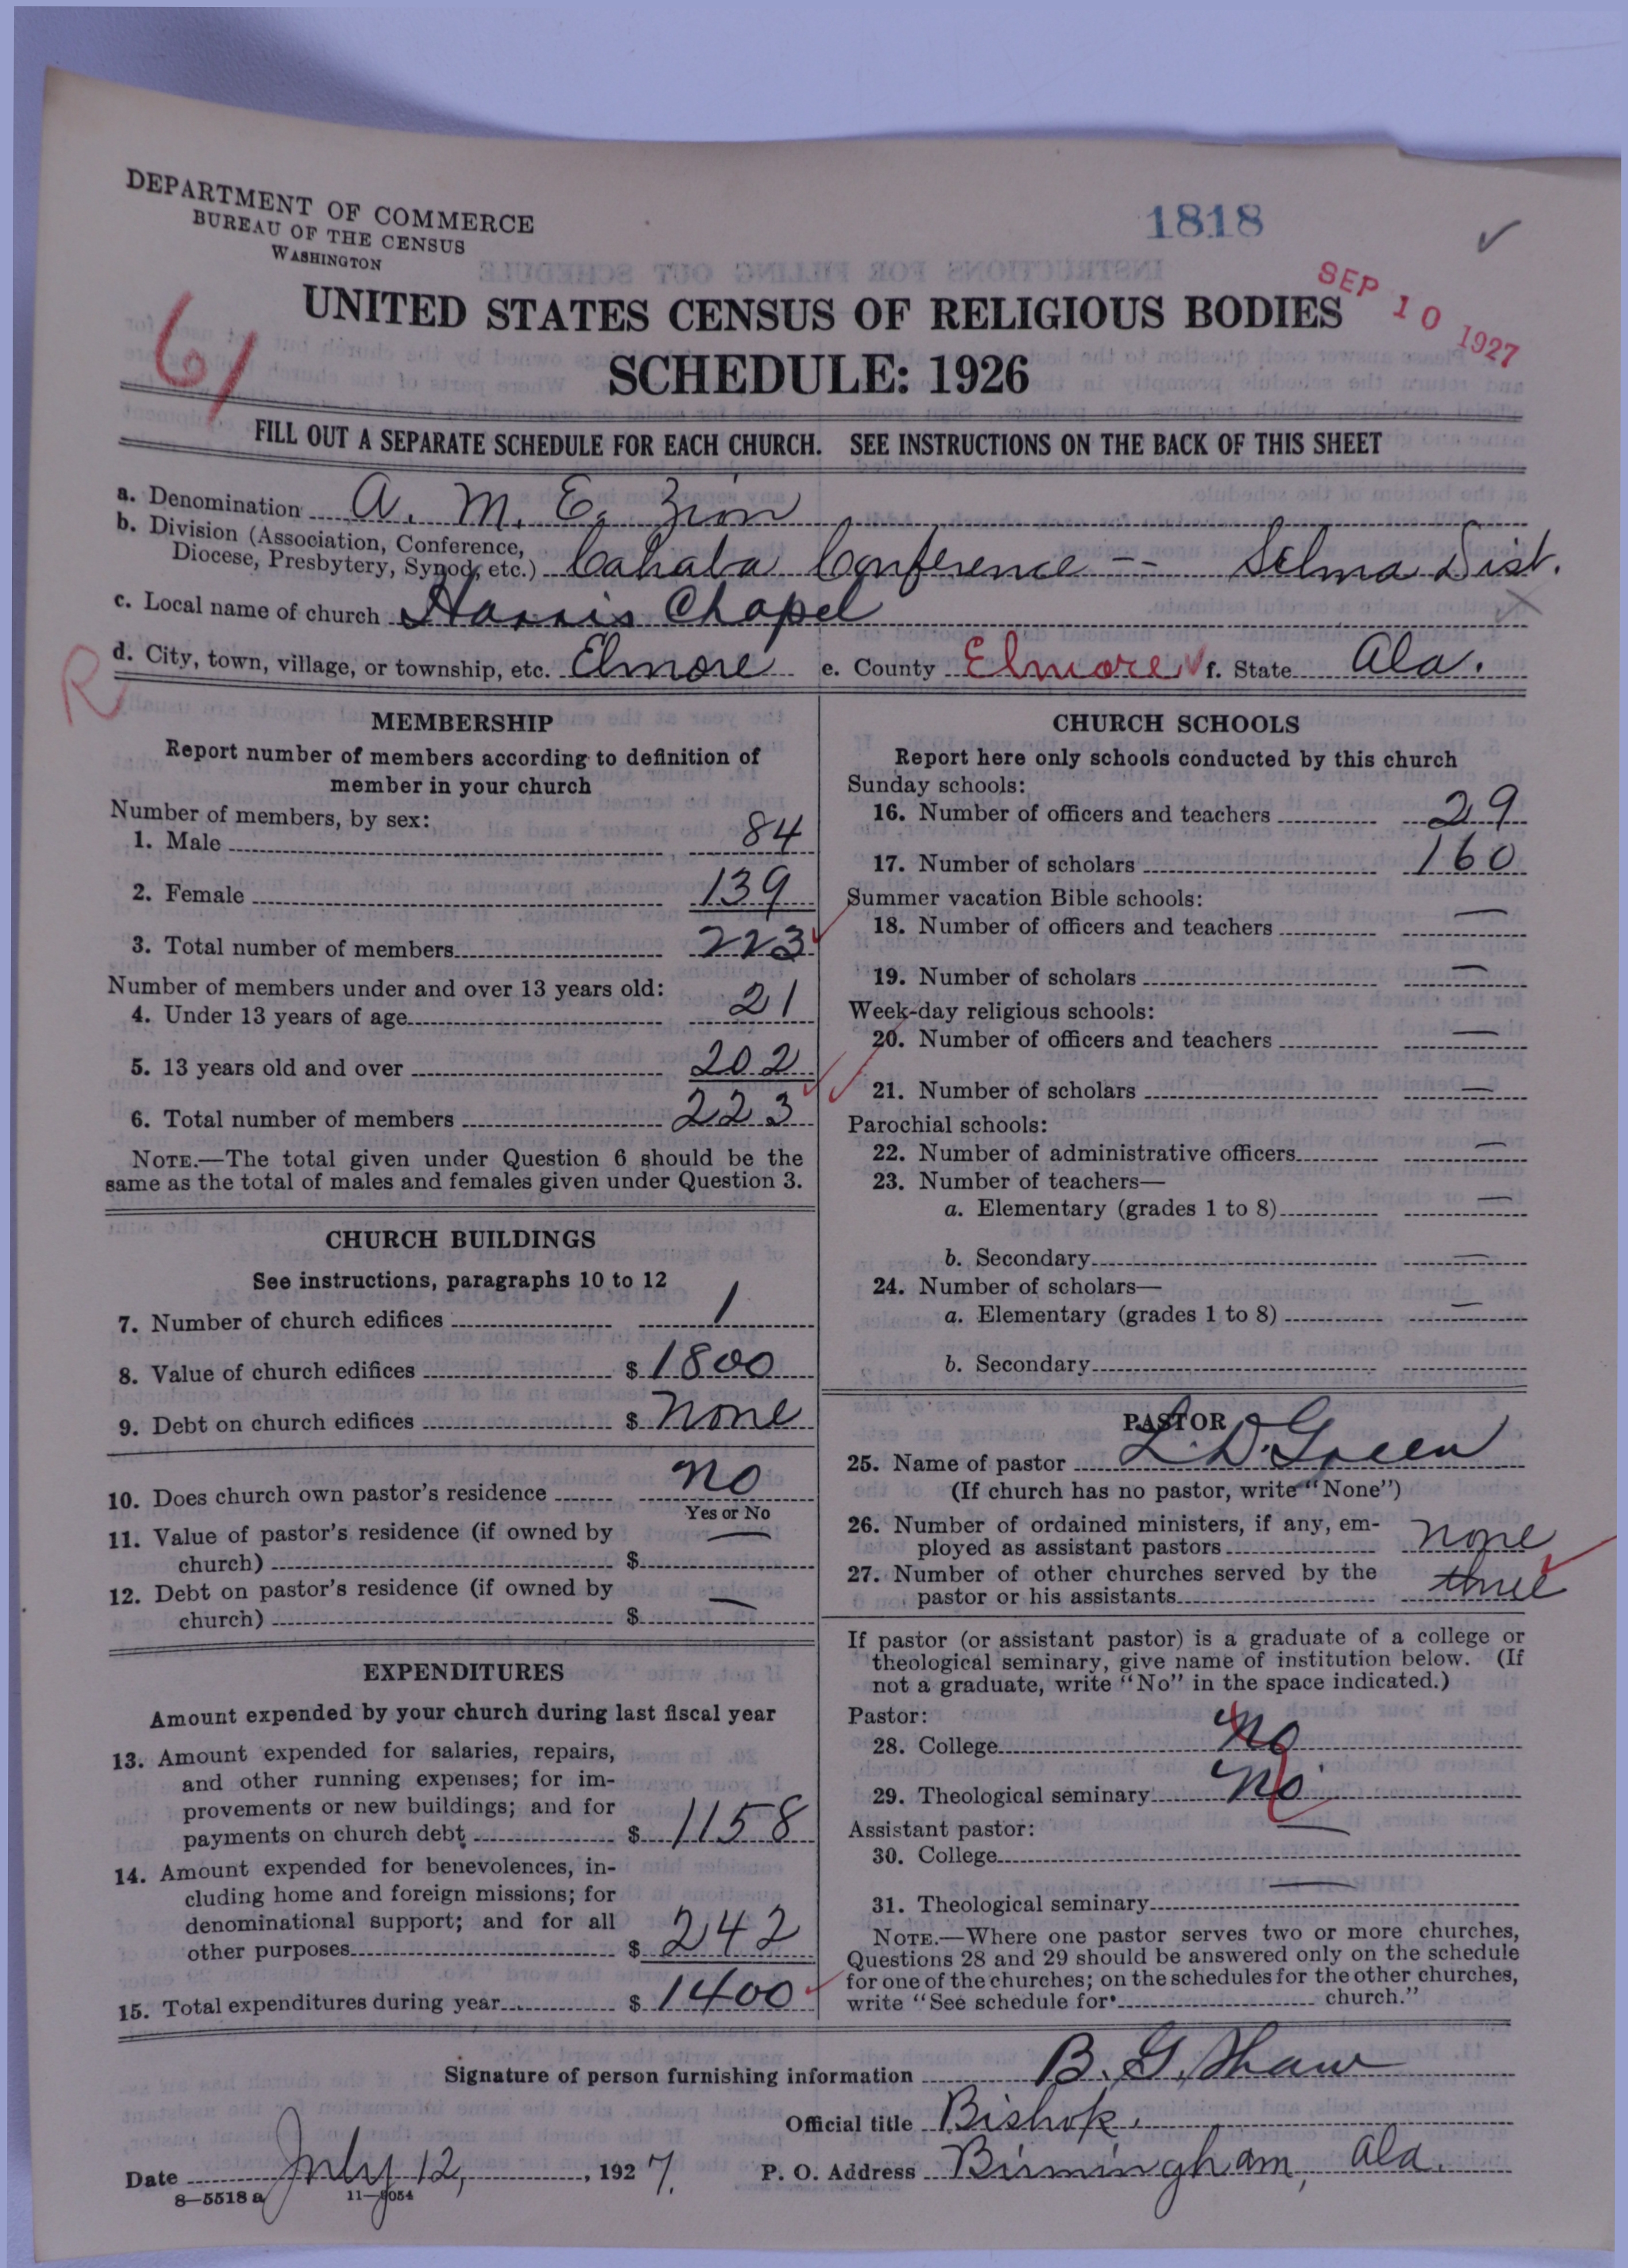 DEPARTMENT OF COMMERCE
BUREAU OF THE CENSUS
WASHINGTON
1818
SEP 10 1927
61
UNITED STATES CENSUS OF RELIGIOUS BODIES
SCHEDULE: 1926
FILL OUT A SEPARATE SCHEDULE FOR EACH CHURCH. SEE INSTRUCTIONS ON THE BACK OF THIS SHEET
a. Denomination A. M. E. Zion
b. Division (Association, Conference,
Diocese, Presbytery, Synod, etc.) Cahaba Conference -- Selma Dist.
c. Local name of church Harris Chapel
R
d. City, town, village, or township, etc. Elmore e. County Elmore f. State Ala.
MEMBERSHIP
Report number of members according to definition of
member in your church
Number of members, by sex:
1. Male 84
2. Female 139
3. Total number of members 223
Number of members under and over 13 years old:
4. Under 13 years of age 21
5. 13 years old and over 202
6. Total number of members 223
NOTE.—The total given under Question 6 should be the
same as the total of males and females given under Question 3.
CHURCH BUILDINGS
See instructions, paragraphs 10 to 12
7. Number of church edifices 1
8. Value of church edifices $ 1800
9. Debt on church edifices $ None
10. Does church own pastor's residence No
Yes or No
11. Value of pastor's residence (if owned by
church) $ —
12. Debt on pastor's residence (if owned by
church) $ —
EXPENDITURES
Amount expended by your church during last fiscal year
13. Amount expended for salaries, repairs,
and other running expenses; for im-
provements or new buildings; and for
payments on church debt $ 1158
14. Amount expended for benevolences, in-
cluding home and foreign missions; for
denominational support; and for all
other purposes $ 242
15. Total expenditures during year $ 1400
CHURCH SCHOOLS
Report here only schools conducted by this church
Sunday schools:
16. Number of officers and teachers 29
17. Number of scholars 160
Summer vacation Bible schools:
18. Number of officers and teachers —
19. Number of scholars —
Week-day religious schools:
20. Number of officers and teachers —
21. Number of scholars —
Parochial schools:
22. Number of administrative officers —
23. Number of teachers—
a. Elementary (grades 1 to 8) —
b. Secondary —
24. Number of scholars—
a. Elementary (grades 1 to 8) —
b. Secondary
PASTOR
25. Name of pastor L. D. Green
(If church has no pastor, write "None")
26. Number of ordained ministers, if any, em-
ployed as assistant pastors none
27. Number of other churches served by the
pastor or his assistants three
If pastor (or assistant pastor) is a graduate of a college or
theological seminary, give name of institution below. (If
not a graduate, write "No" in the space indicated.)
Pastor:
28. College No
29. Theological seminary No
Assistant pastor:
30. College —
31. Theological seminary —
NOTE.—Where one pastor serves two or more churches,
Questions 28 and 29 should be answered only on the schedule
for one of the churches; on the schedules for the other churches,
write "See schedule for church."
Signature of person furnishing information B. G. Shaw
Official title Bishop.
Date July 12, 1927. P. O. Address Birmingham, Ala.
8—5518 a 11—9054